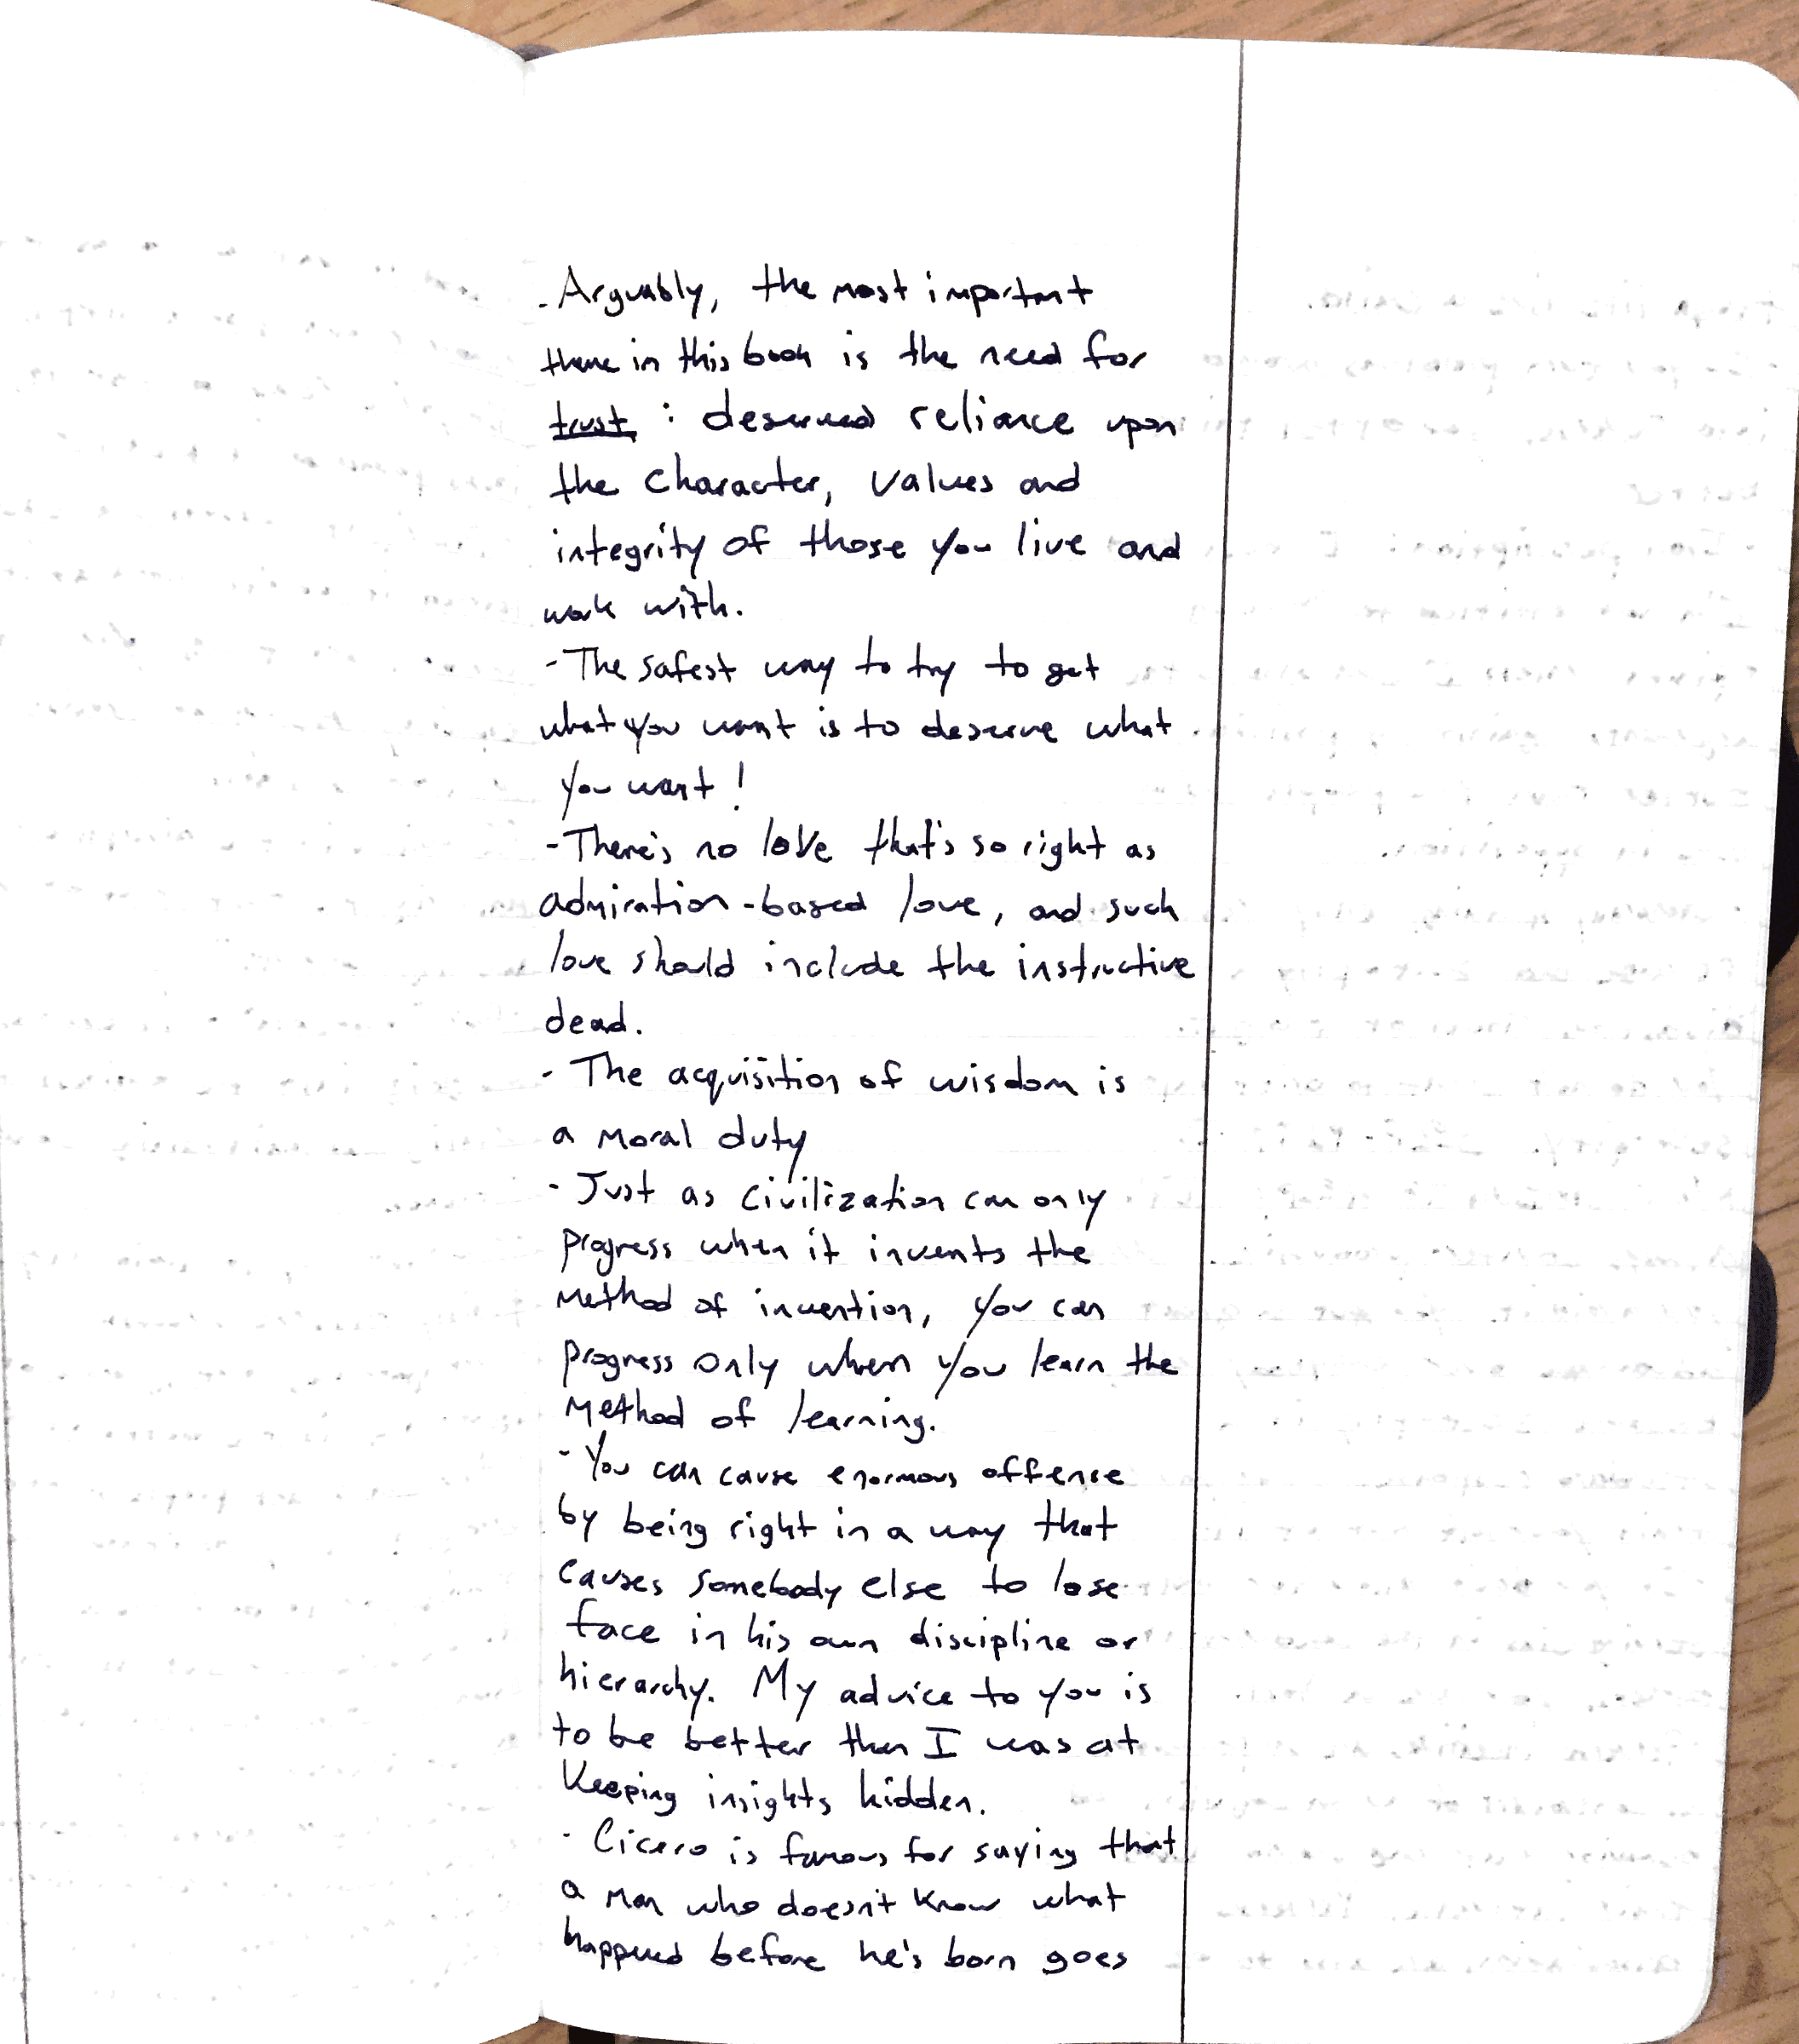 - Arguably, the most important
theme in this book is the need for
trust : deserved reliance upon
the character, values and
integrity of those you live and
work with.
- The safest way to try to get
what you want is to deserve what
you want !
- There's no love that's so right as
admiration-based love, and such
love should include the instructive
dead.
- The acquisition of wisdom is
a moral duty
- Just as civilization can only
progress when it invents the
method of invention, you can
progress only when you learn the
method of learning.
- You can cause enormous offense
by being right in a way that
causes somebody else to lose
face in his own discipline or
hierarchy. My advice to you is
to be better than I was at
keeping insights hidden.
- Cicero is famous for saying that
a man who doesn't know what
happened before he's born goes